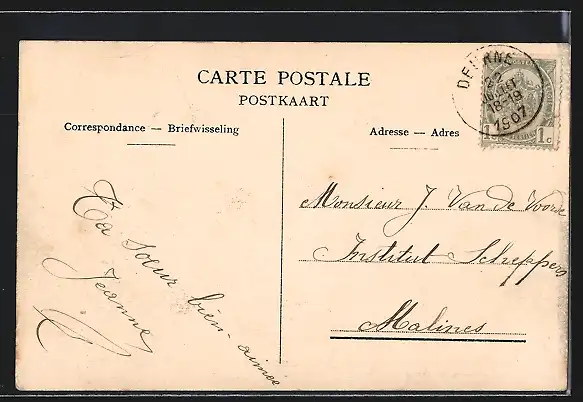 CARTE POSTALE
POSTKAART
Correspondance — Briefwisseling
Adresse — Adres
DEURNE
22
18-19
1907
1 c
Monsieur J. Van de Voorde
Institut Scheppers
Malines
Ta soeur bien-aimée
Jeanne